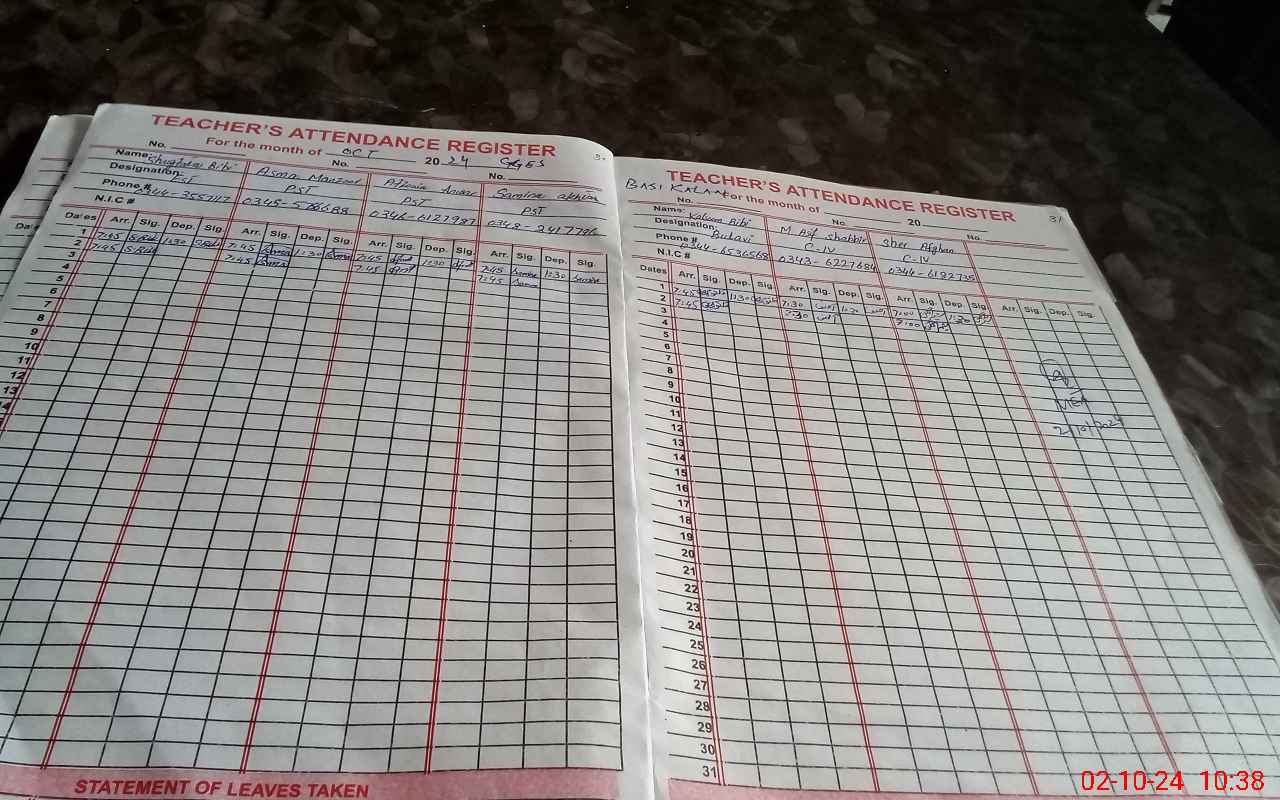 TEACHER'S ATTENDANCE REGISTER
For the month of OCT 2024 GGES
No. No. No.
Name: Shughta Bibi Asma Manzoor Anwar Samina akhtar
Designation: PST PST PST PST
Phone # 0345-5786688 0346-6127987
N.I.C #
Dates Arr. Sig. Dep. Sig. Arr. Sig. Dep. Sig. Arr. Sig. Dep. Sig. Arr. Sig. Dep. Sig.
1 7:45 S.Bibi 1:30 S.Bibi 7:45 Asma 1:30 Asma 7:45 1:30 7:45 Samina 1:30 Samina
2 7:45 S.Bibi 7:45 Asma 7:45 7:45 Samina
3
4
5
6
7
8
9
10
11
12
13
14
STATEMENT OF LEAVES TAKEN
TEACHER'S ATTENDANCE REGISTER
31
BASI KALAN For the month of 20
No. No. No.
Name: Kalsum Bibi M. Asif Shabbir Sher Afghan
Designation: C-IV C-IV
Phone # 0344-6536568 0343-6227684 0344-6182735
N.I.C #
Dates Arr. Sig. Dep. Sig. Arr. Sig. Dep. Sig. Arr. Sig. Dep. Sig. Arr. Sig. Dep. Sig.
1 7:45 1:30 7:30 1:30 7:00 1:30
2 7:45 7:30 7:00
3
4
5
6
7
8
9
10
11
12
13
14
15
16
17
18
19
20
21
22
23
24
25
26
27
28
29
30
31
MEA
2/10/2024
02-10-24 10:38